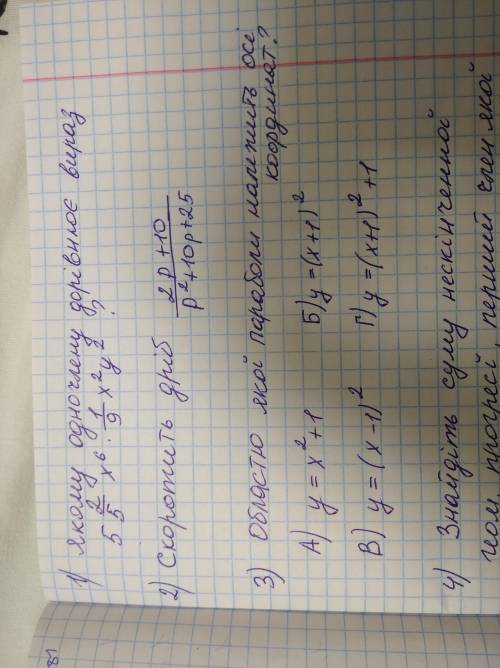 1) Якому одночлену дорівнює вираз
5 2/5 x⁶ · 1/9 x²y² ?
2) Скоротить дріб (2p+10)/(p²+10p+25)
3) Областю якої параболи належить осі
координат?
А) y = x² + 1 Б) y = (x+1)²
В) y = (x-1)² Г) y = (x+1)² + 1
4) Знайдіть суму нескінченної
геом прогресі, перший член якой